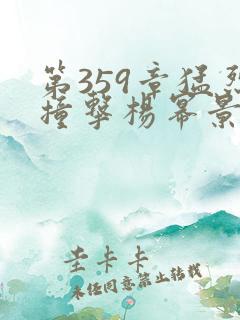 第359章猛烈
撞擊楊冪景
圭卡卡
未经同意禁止转载